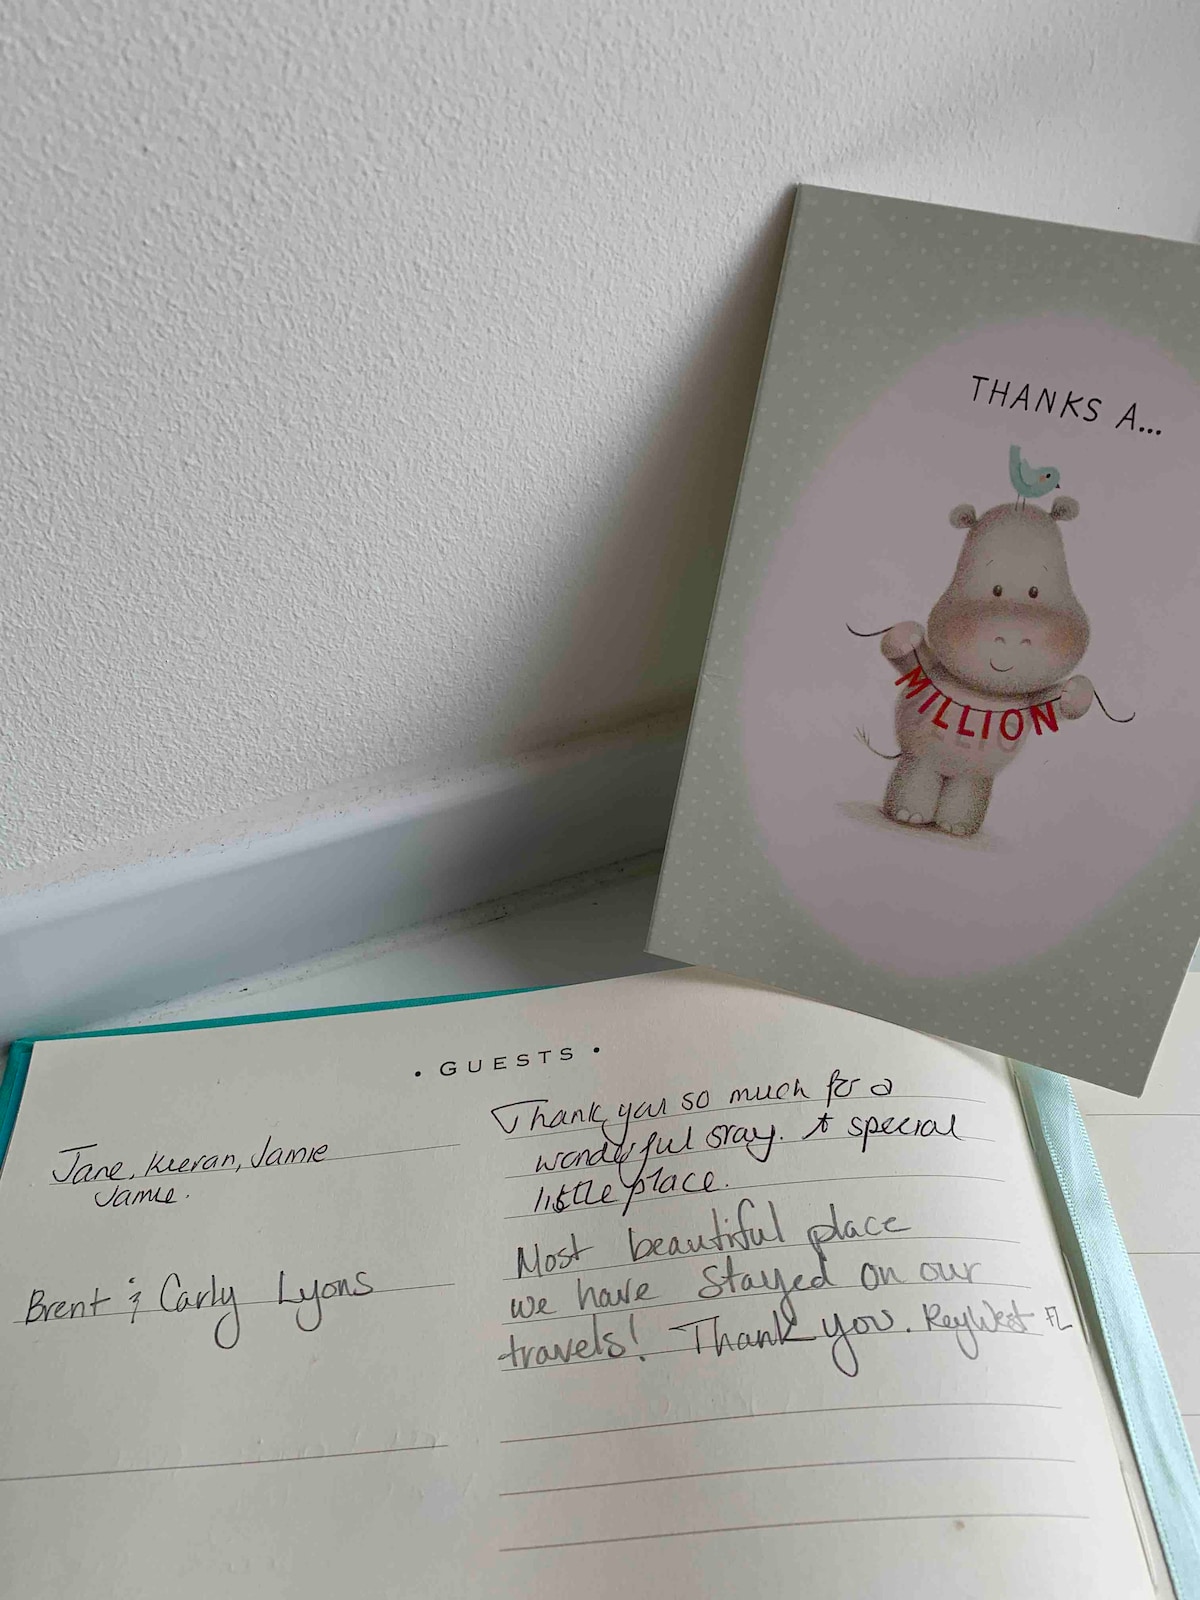 THANKS A...
MILLION
• GUESTS •
Jane, Kieran, Jamie
Jamie.
Thank you so much for a
wonderful stay. A special
little place.
Brent & Carly Lyons
Most beautiful place
we have stayed on our
travels! Thank you. Key West FL